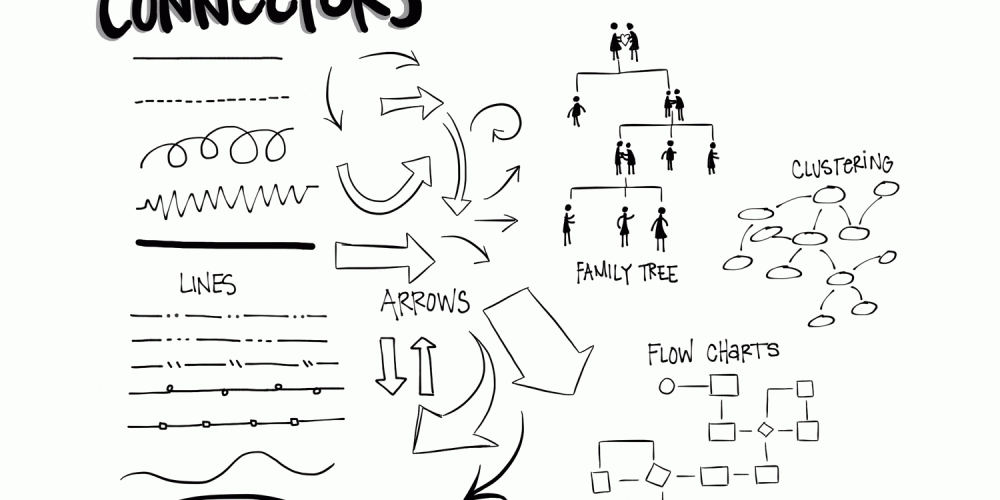 CONNECTORS
LINES
ARROWS
FAMILY TREE
CLUSTERING
FLOW CHARTS